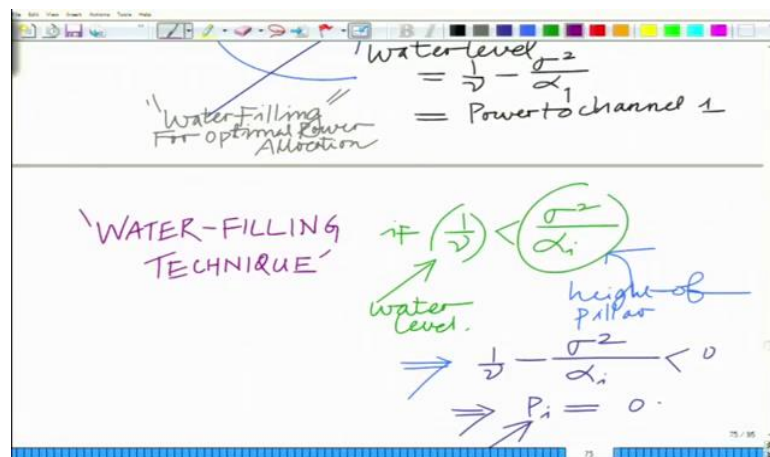 File Edit View Insert Actions Tools Help
Water level
= 1/ν − σ²/α₁
= Power to channel 1
"Water Filling"
For Optimal Power
Allocation
'WATER-FILLING
TECHNIQUE'
if (1/ν) < σ²/αᵢ
water
level.
height of
pillar
⇒ 1/ν − σ²/αᵢ < 0
⇒ Pᵢ = 0.
75 / 95
75